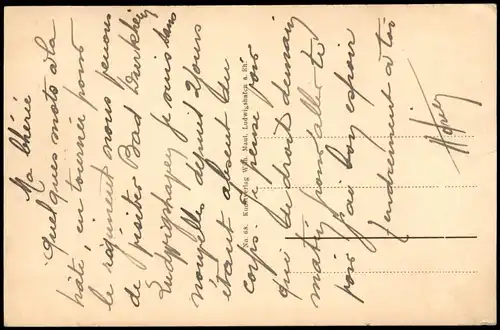 Ma chérie
Quelques mots à la
hâte, en tournée pour
le régiment nous venons
de visiter Bad Durkheim
Ludwigshafen je suis sans
nouvelles depuis 2 jours
étant absent du
corps. Je pense
que de droit demain
matin pour aller te
j'ai bon espoir
Tendrement à toi
No. 68. Kunstverlag Wilh. Maul, Ludwigshafen a. Rh.